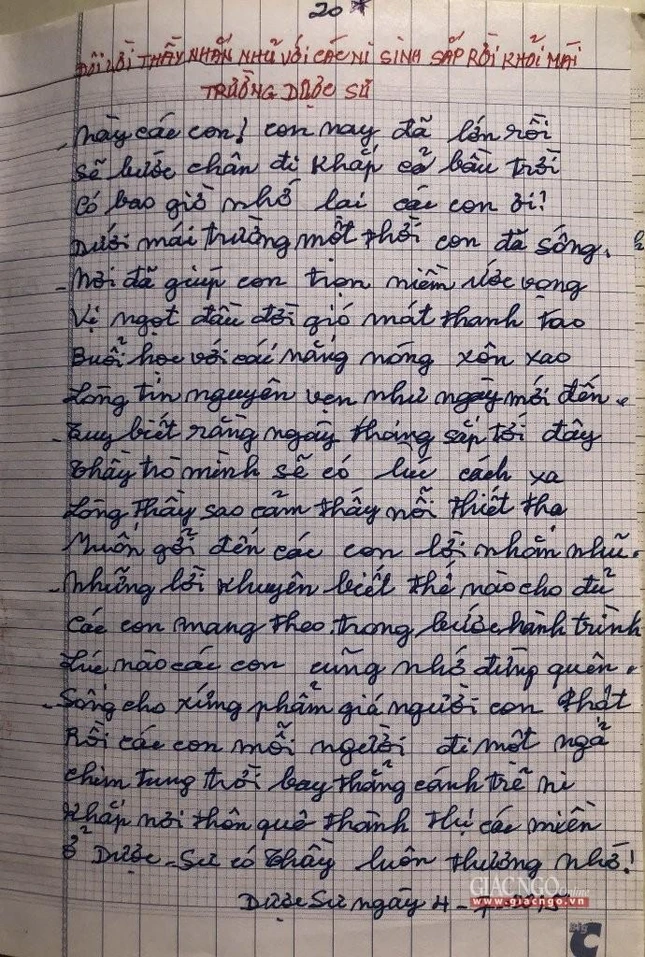 20
ĐÔI LỜI THẦY NHẮN NHỦ VỚI CÁC NI SINH SẮP RỜI KHỎI MÁI
TRƯỜNG DƯỢC SƯ
- Này các con! con nay đã lớn rồi
Sẽ bước chân đi khắp cả bầu trời
Có bao giờ nhớ lại các con ơi!
Dưới mái trường một thời con đã sống.
- Nơi đã giúp con trọn niềm ước vọng
Vị ngọt đầu đời gió mát thanh tao
Buổi học với cái nắng nóng xôn xao
Lòng tin nguyên vẹn như ngày mới đến.
- Tuy biết rằng ngày tháng sắp tới đây
Thầy trò mình sẽ có lúc cách xa
Lòng thầy sao cảm thấy nỗi thiết tha
Muốn gởi đến các con lời nhắn nhũ.
- Những lời khuyên biết thế nào cho đủ
Các con mang theo trong bước hành trình
Lúc nào các con cũng nhớ đừng quên.
- Sống cho xứng phẩm giá người con Phật
Rồi các con mỗi người đi một ngả
Chim tung trời bay thẳng cánh trẻ ni
Khắp nơi thôn quê thành thị các miền
Ở Dược-Sư có thầy luôn thương nhớ!
Dược Sư ngày 4 -
GIACNGO Online
www.giacngo.vn